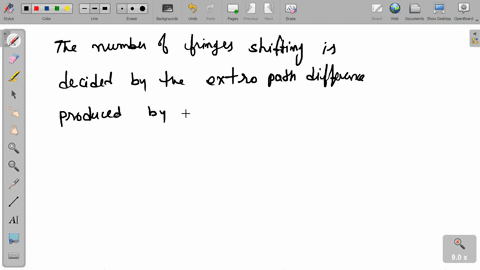 Status Color Line Eraser Backgrounds Undo Redo Pages Previous Next Erase Board Web Documents Show Desktop OpenBoard
The number of fringes shifting is
decided by the extro path difference
produced by
9.0 x